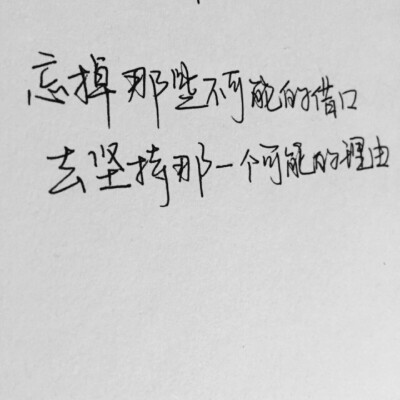 忘掉那些不可能的借口
去坚持那一个可能的理由